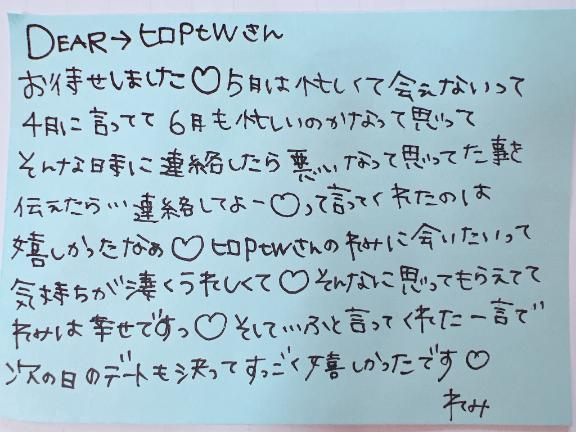 DEAR→ヒロPtWさん
お待せしました♡5月は忙しくて会えないって
4月に言ってて6月も忙しいのかなって思って
そんな時に連絡したら悪いなって思ってた事を
伝えたら…連絡してよー♡って言ってくれたのは
嬉しかったなぁ♡ヒロPtWさんのれみに会いたいって
気持ちが凄くうれしくて♡そんなに思ってもらえてて
れみは幸せですっ♡そして…ふと言ってくれた一言で
次の日のデートも決ってすっごく嬉しかったです♡
れみ